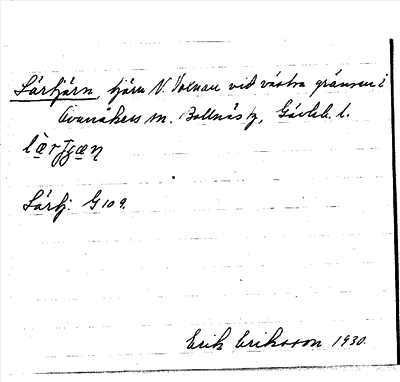 Lärtjärn, tjärn N. Voxnan vid västra gränsen i
Ovanåkers sn. Bollnäs tg, Gävleb. l.
Lärtj. G 109.
Erik Eriksson 1930.